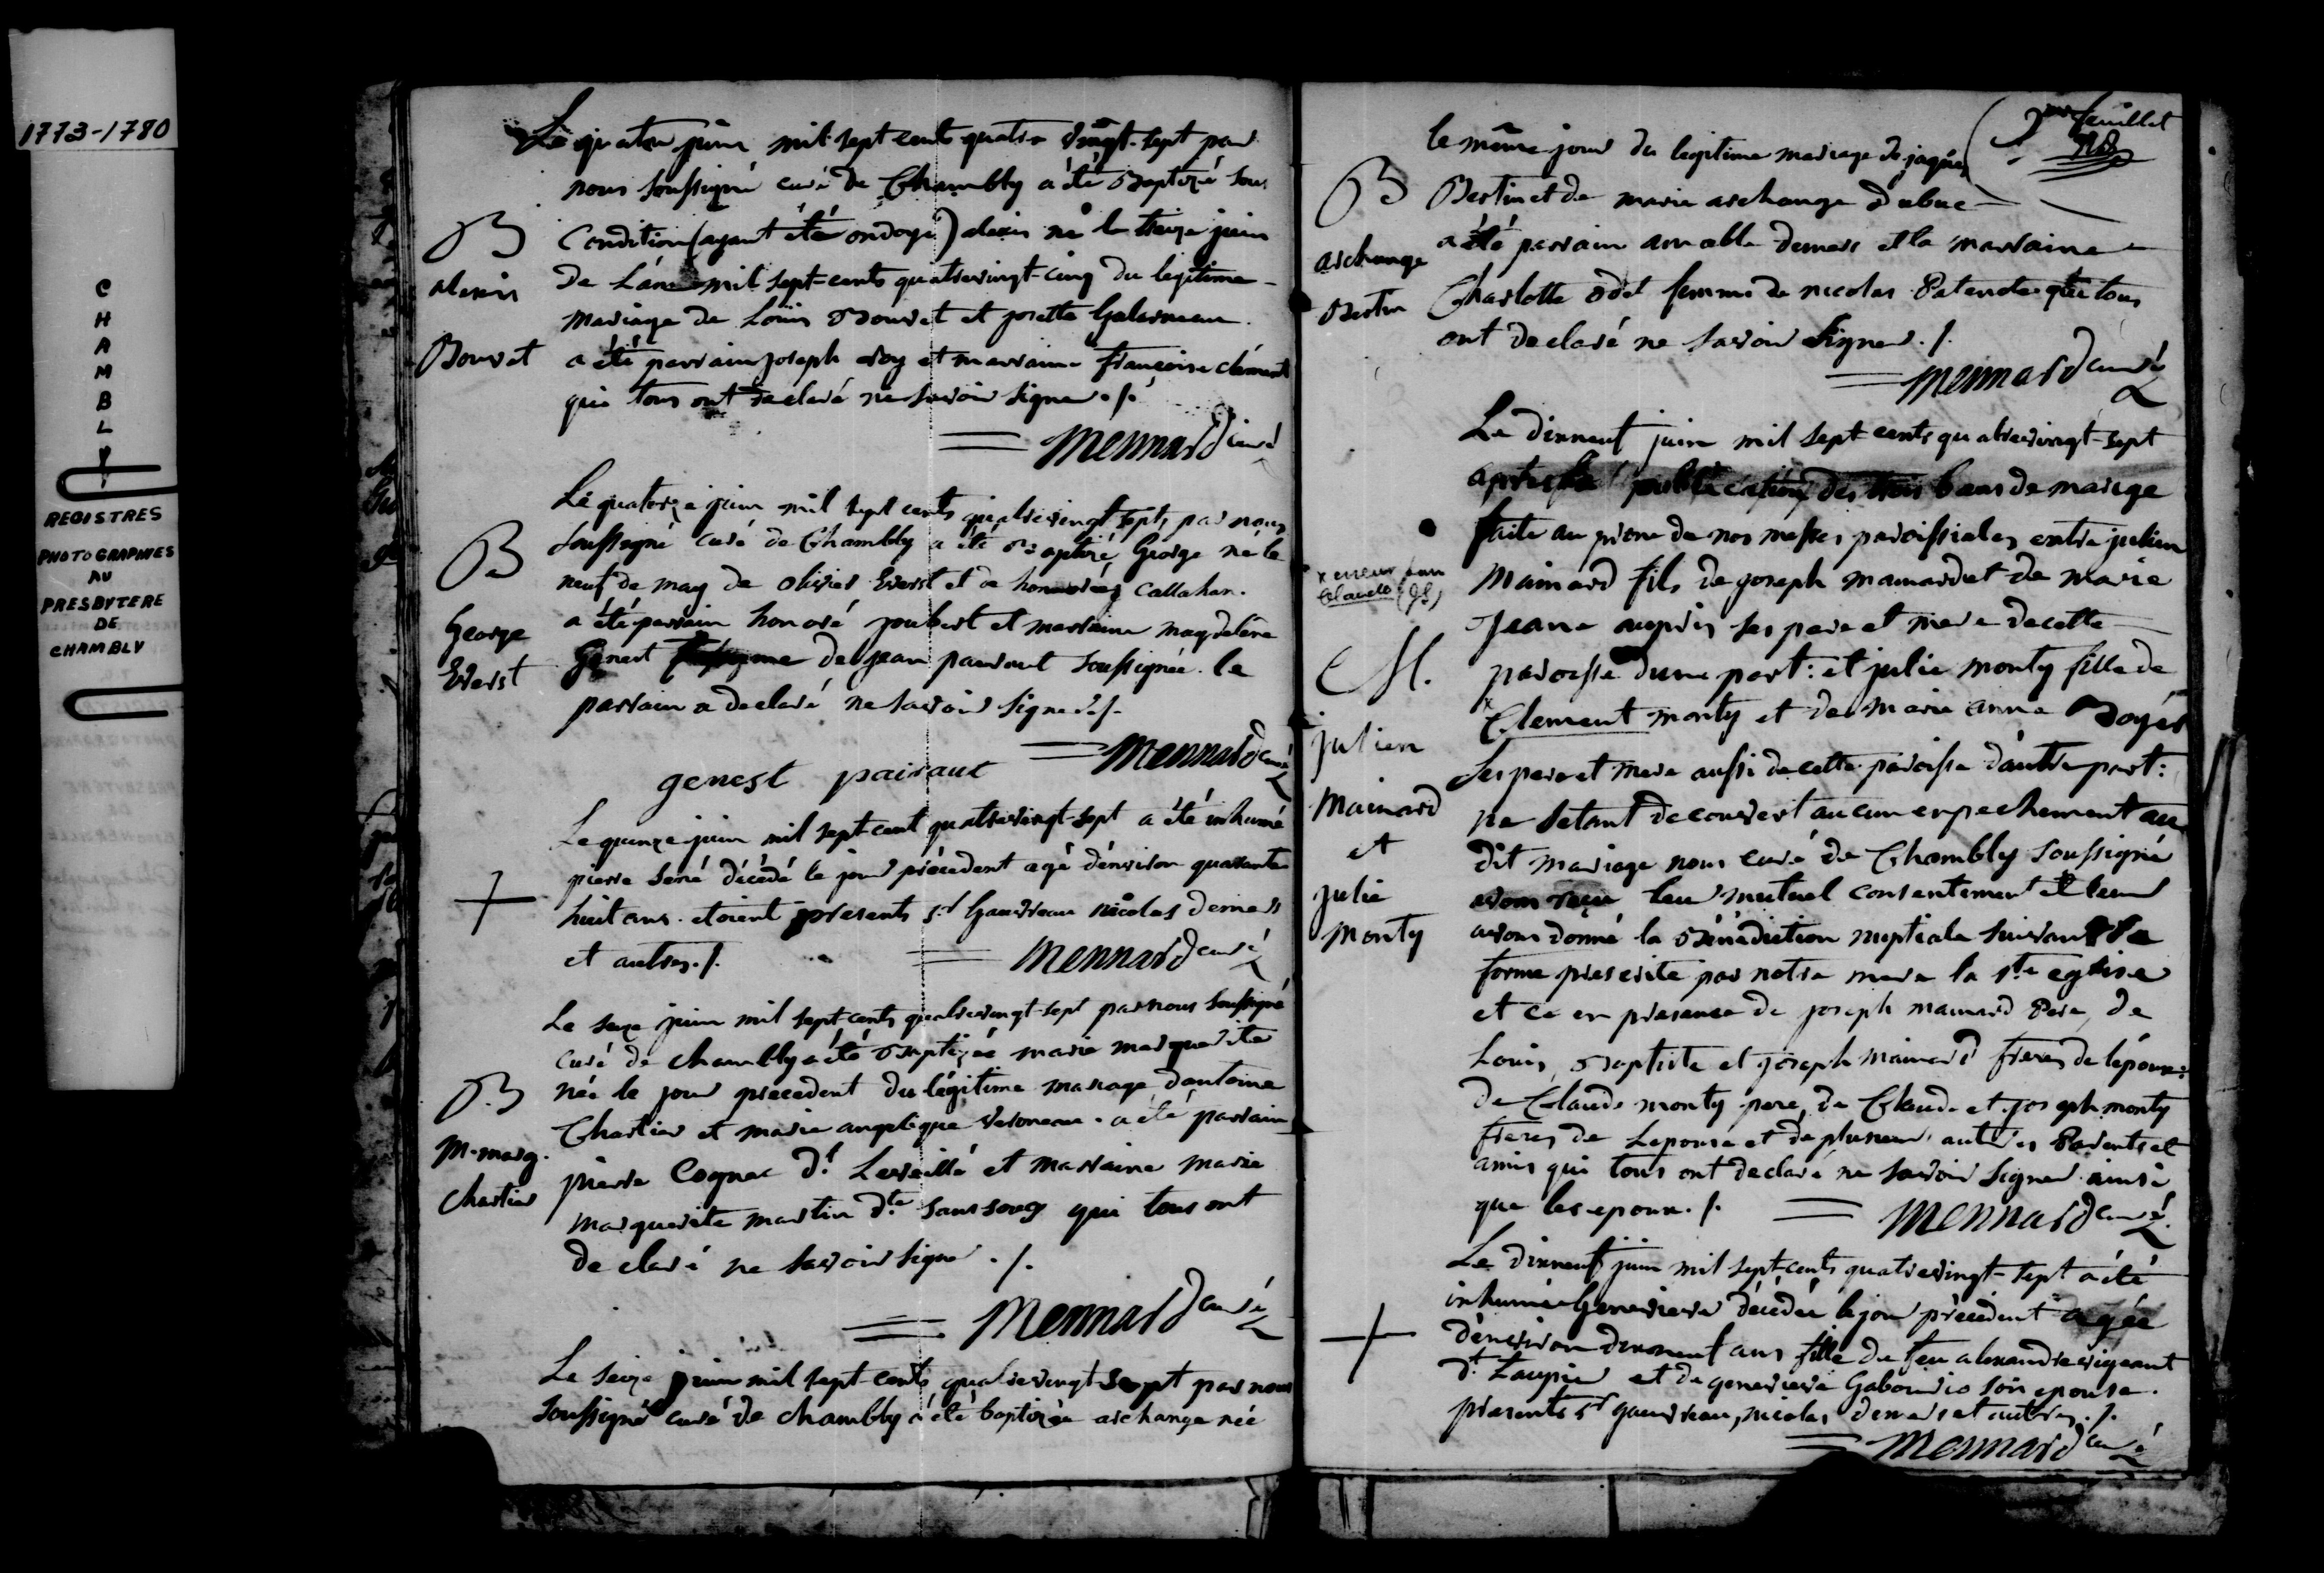 1773-1780
CHAMBLY
REGISTRES
PHOTOGRAPHIES
AU
PRESBYTERE
DE
CHAMBLY
Le quatre juin mil sept cents quatre vingt-sept par
nous soussigné curé de Chambly a été Baptizé sous
B
Condition (ayant été ondoyé) alexis né le treize juin
alexis
de L'année mil sept-cents quatrevingt-cinq du legitime
mariage de Louis Bouret et josette Galerneau.
Bouret
a été parrain joseph roy et marraine francoise clément
qui tous ont declaré ne savoir signer ./.
Mennard curé
Le quatorze juin mil sept cents quatrevingt sept, par nous
soussigné curé de Chambly a été Baptizé George né le
B
neuf de may de olivier Everst et de Callahan.
George
a été parrain honoré joubert et marraine magdeléne
Everst
Genest de jean pairaut soussignée. le
parrain a declaré ne savoir signer ./.
Mennard curé
genest pairaut
Le quinze juin mil sept-cent quatrevingt-sept a été inhumé
pierre Serré décédé le jour précedent agé d'environ quarante
+
huit ans. etoient presents sr Gaudreau nicolas demers
et autres ./.
Mennard curé
Le seize juin mil sept cents quatrevingt-sept par nous soussigné
curé de chambly a été Baptizée marie marguerite
B
née le jour precedent du légitime mariage d'antoine
Chartier et marie angelique . a été parrain
M. marg.
pierre Cognac dt Leveillé et marraine marie
Chartier
marguerite martin dte sanssoucy qui tous ont
declaré ne savoir signer ./.
Mennard curé
Le seize juin mil sept-cents quatrevingt-sept par nous
soussigné curé de chambly a été baptizée archange née
2me feuillet
le même jour du legitime mariage de jaques
B
Bertin et de marie archange Dubuc
archange
a été parrain amable demers et la marraine
Bertin
Charlotte odet femme de nicolas Patenote qui tous
ont declaré ne savoir signer ./.
Mennard curé
Le dixneuf juin mil sept cents quatrevingt-sept
après la publication des trois bans de mariage
faite au prone de nos messes paroissiales entre julien
x erreur
Claude
Mainard fils de joseph mainard et de marie
Jeane ses pere et mere de cette
M.
paroisse d'une part: et julie monty fille de
x
Clement monty et de marie anne Boyer
julien
ses pere et mere aussi de cette paroisse d'autre part:
Mainard
ne s'etant decouvert aucun enpechement au
et
dit mariage nous curé de Chambly soussigné
julie
avons reçu leur mutuel consentement et leur
Monty
avons donné la Bénédiction nuptiale suivant la
forme prescrite par notre mere la ste eglise
et ce en presence de joseph mainard Pere, de
Louis, Baptiste et joseph mainard freres de l'époux:
de Claude monty pere, de Claude et joseph monty
freres de l'epouse et de plusieurs autres Parents et
amis qui tous ont declaré ne savoir signer ainsi
que les epoux ./.
Mennard curé
Le dixneuf juin mil sept-cents quatrevingt-sept a été
inhumée Genevieve décédée le jour précedent agée
+
d'environ dixneuf ans fille du feu alexandre
dt Laupin et de genevieve son epouse.
presents sr gaudreau, nicolas demers et autres ./.
Mennard curé